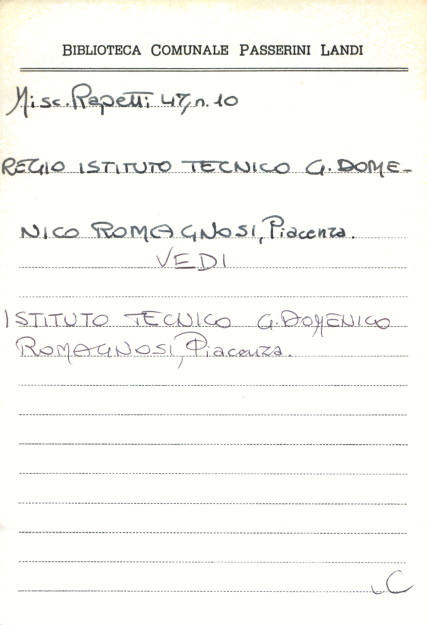 BIBLIOTECA COMUNALE PASSERINI LANDI
Misc. Rapetti 47, n. 10
REGIO ISTITUTO TECNICO G. DOME-
NICO ROMAGNOSI, Piacenza.
VEDI
ISTITUTO TECNICO G. DOMENICO
ROMAGNOSI, Piacenza.
C